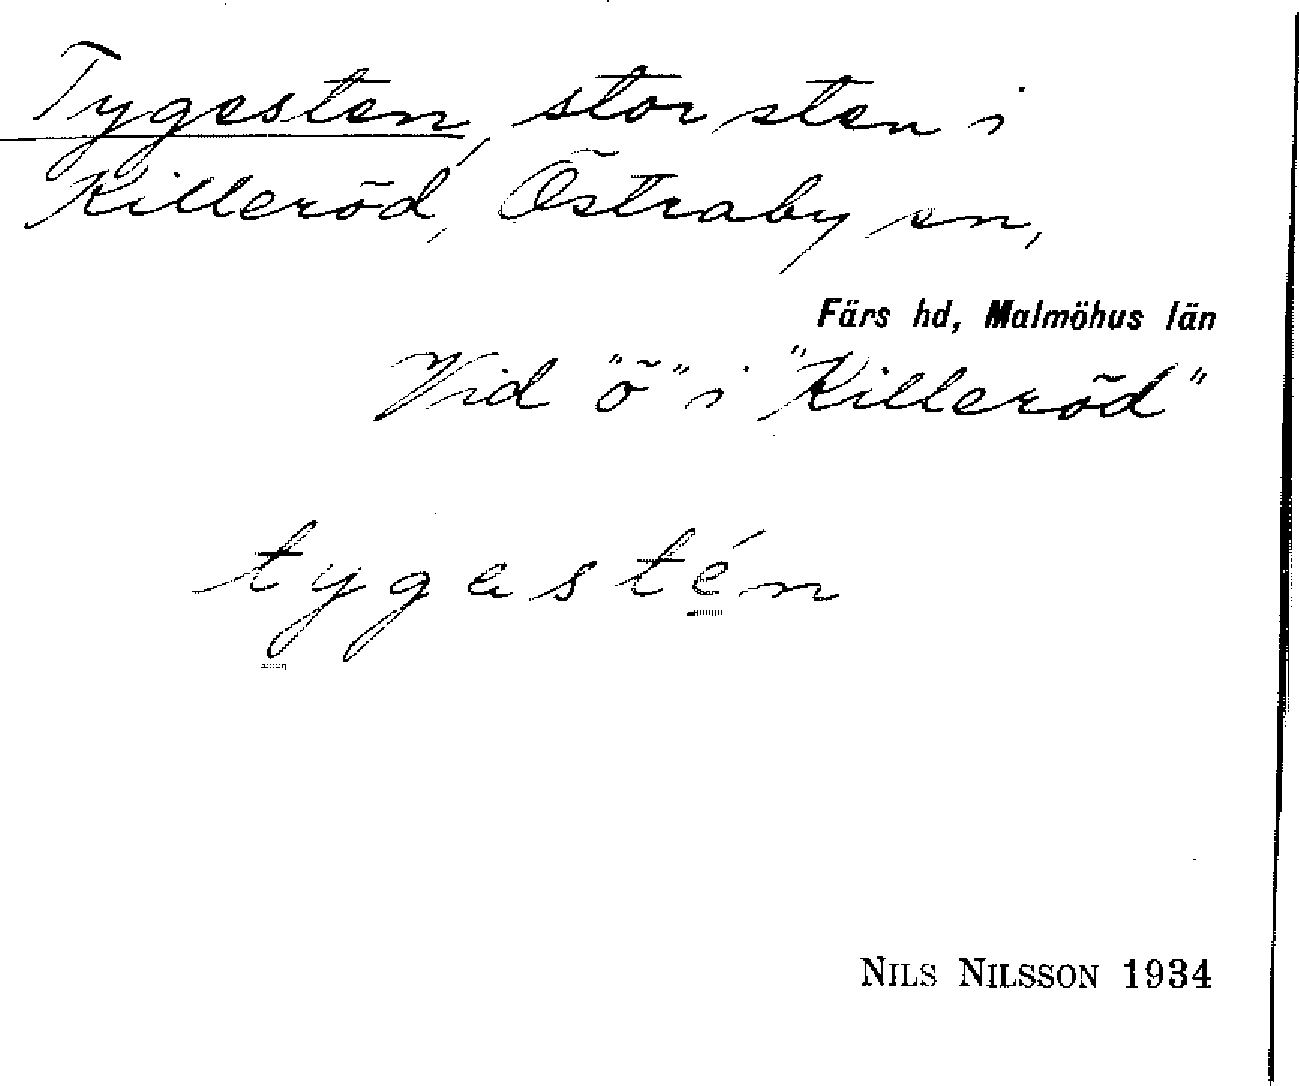 Tygesten, stor sten i
Killeröd, Östraby sn,
Färs hd, Malmöhus län
Vid "ö" i "Killeröd"
tygastén
NILS NILSSON 1934